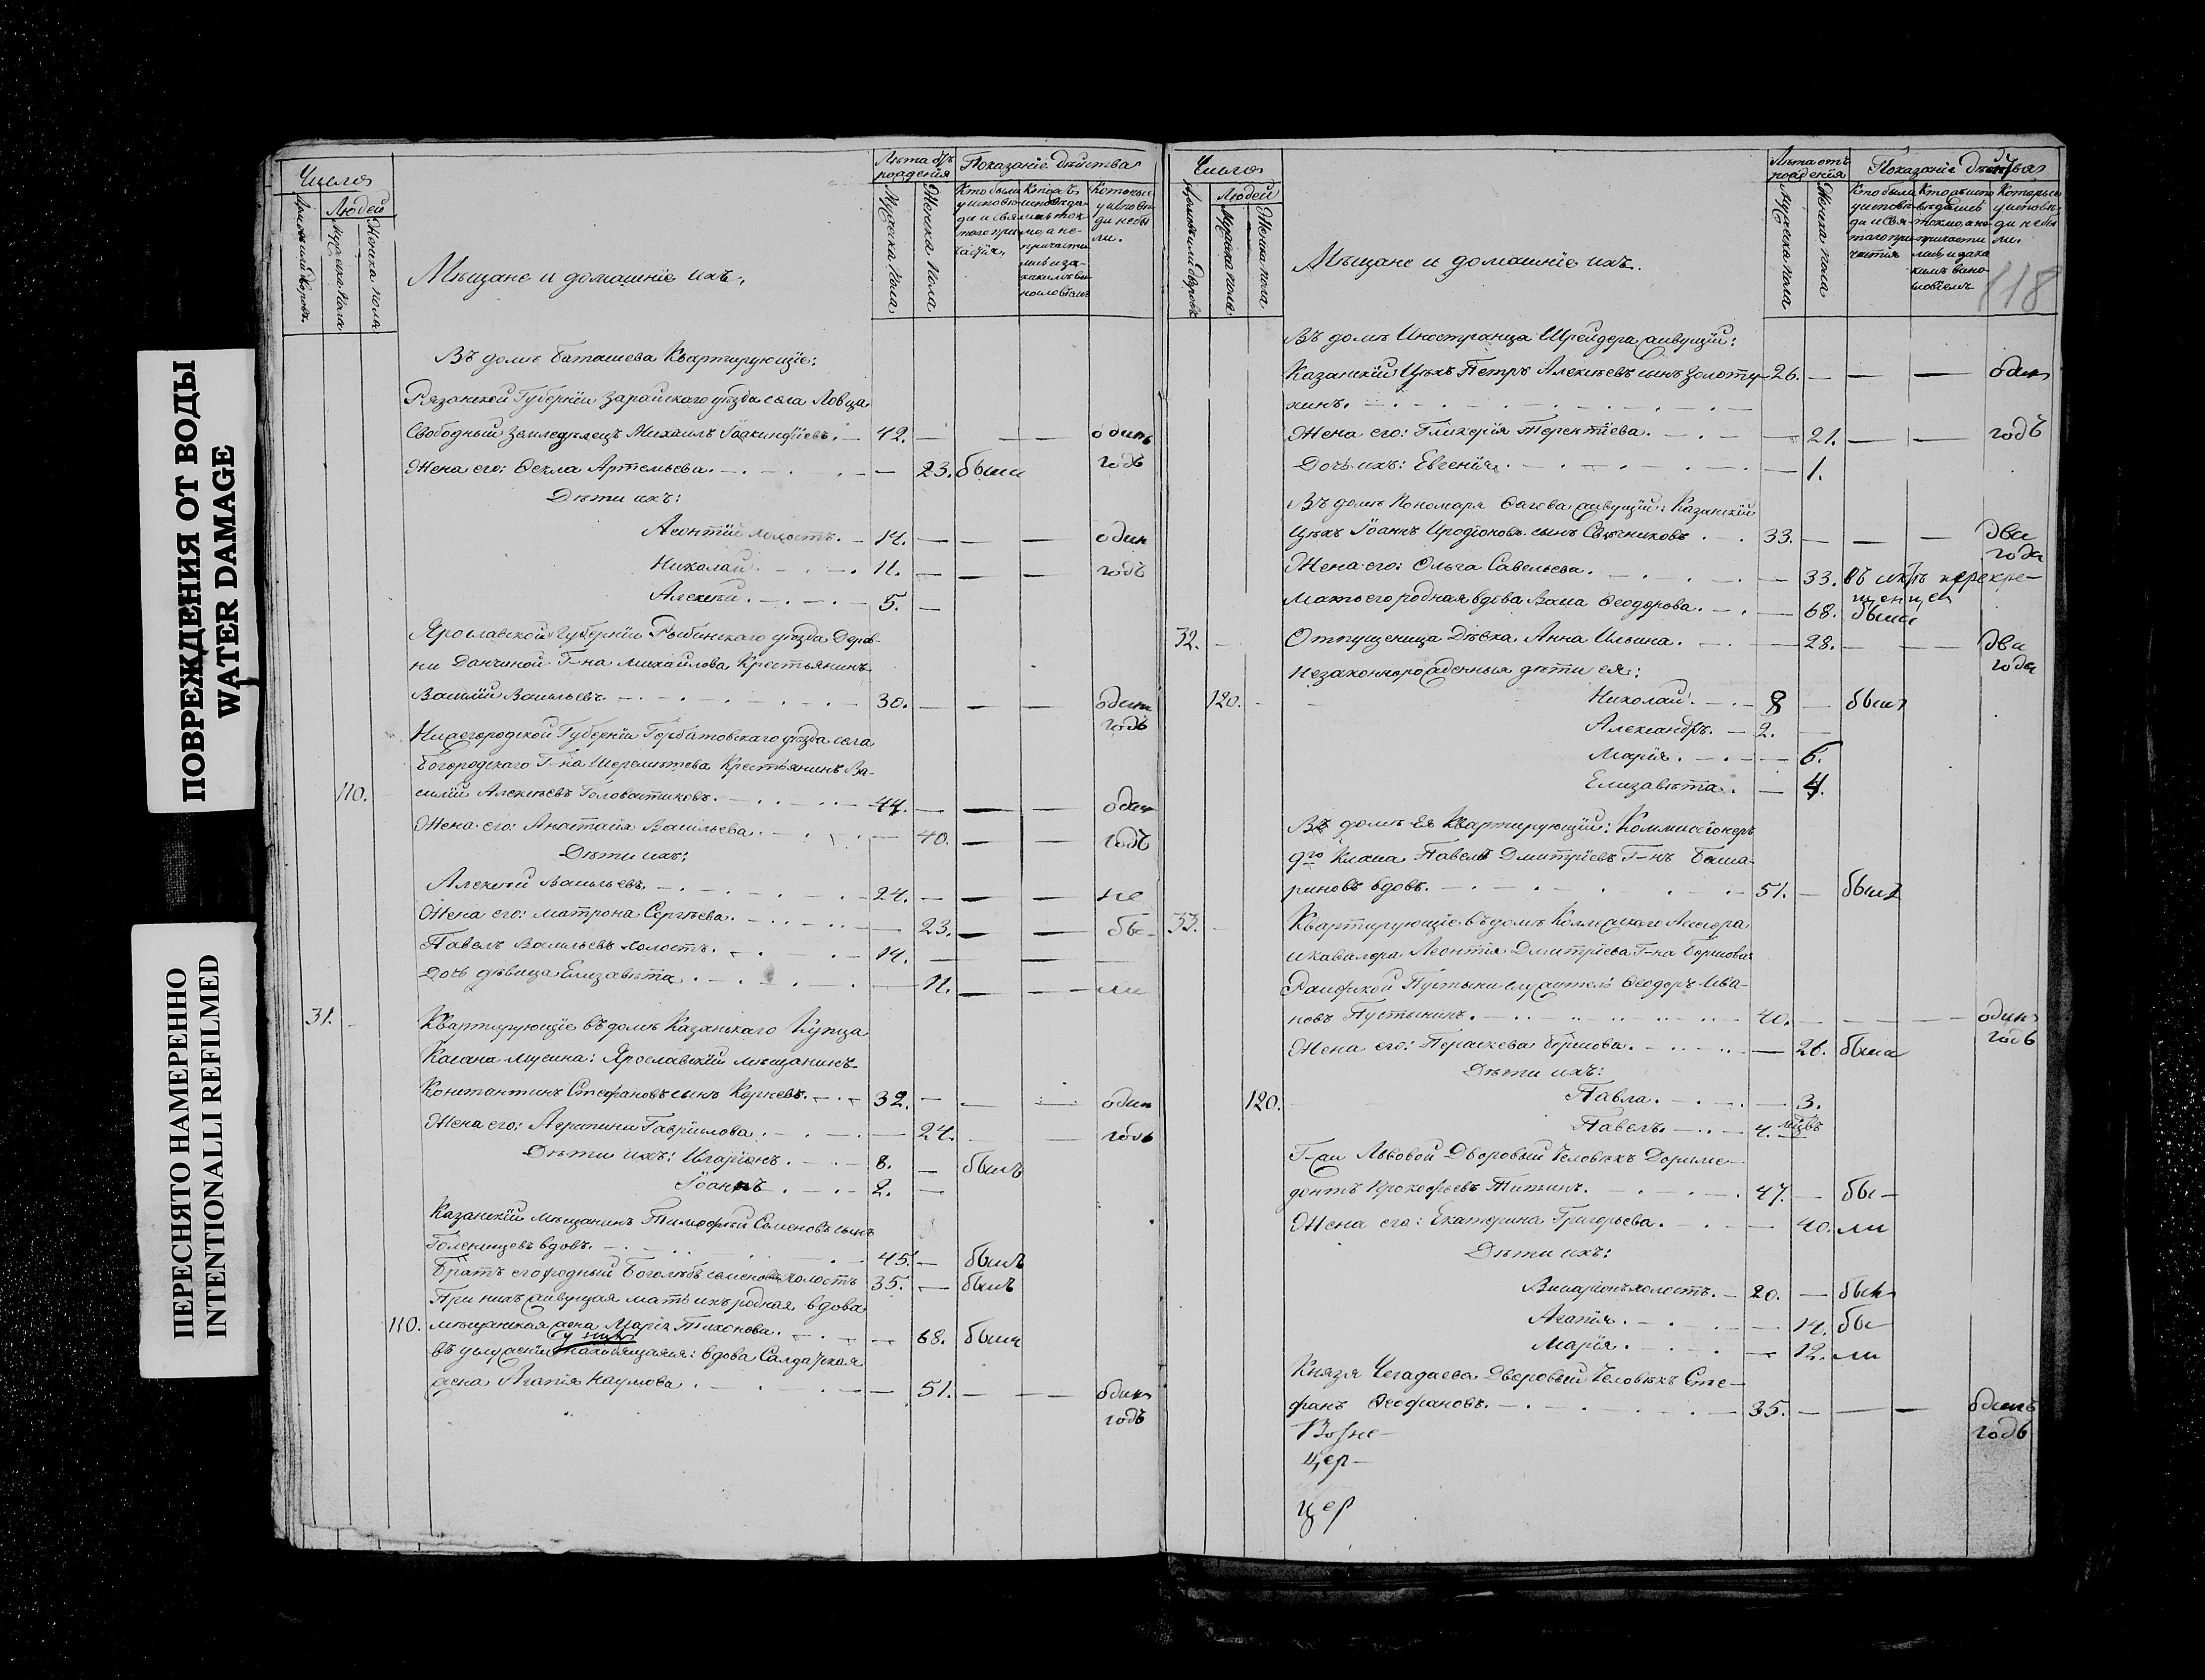 ПОВРЕЖДЕНИЯ ОТ ВОДЫ
WATER DAMAGE
ПЕРЕСНЯТО НАМЕРЕННО
INTENTIONALLI REFILMED
Число
Людей
Мужеска пола
Женска пола
Мѣщане и домашніе ихъ.
Лѣта отъ рожденія
Мужеска пола
Женска пола
Показаніе дѣйства
Кто были у исповѣди и святаго причастія
Которые у исповѣди не были.
Въ доме Баташева Квартирующіе:
Рязанской Губерніи Зарайскаго уѣзда села Ловца
Свободный Земледѣлецъ Михаилъ Іоакинфіевъ. 42. — — — одинъ
Жена его: Фекла Артемьева. — 23. были годъ
Дѣти ихъ:
Леонтій холостъ. 14. — — — один
Николай. 11. — — — годъ
Алексѣй. 5. —
Ярославской Губерніи Рыбинскаго уѣзда Дерев-
ни Данчиной Г-на Михайлова Крестьянинъ
Василій Васильевъ. 30. — — — один
годъ
Нижегородской Губерніи Горбатовскаго уѣзда села
Богородскаго Г-на Шереметева Крестьянинъ Ва-
110. силій Алексѣевъ Головастиковъ. 44. — — — один
Жена его: Анастасія Васильева. — 40. — — годъ
Дѣти ихъ:
Алексѣй Васильевъ. 24. — — — не
Жена его: Матрона Сергѣева. — 23. — — бы-
Павелъ Васильевъ холостъ. 14. — — —
Дочь дѣвица Елизавета. — 11. — — ли
31. Квартирующіе въ домѣ Казанскаго Купца
Мусина: Ярославскій мѣщанинъ
Константинъ Стефановъ сынъ Корневъ. 32. — — — один
Жена его: Агрипина Гавриілова. — 24. — — годъ
Дѣти ихъ: Иларіонъ. 8. — былъ
Іоаннъ. 2. —
Казанскій мѣщанинъ Тимофей Семеновъ сынъ
Голенищевъ вдовъ. 45. — былъ
Братъ его родный Боголѣбъ Семеновъ холостъ 35. — былъ
При нихъ живущая мать ихъ родная вдова
110. мѣщанская жена Марія Тихонова. — 68. была
у нихъ
въ услуженіи находящаяся: вдова Салдатская
жена Агапія Наумова. — 51. — — один
годъ
Число
Людей
Мужеска пола
Женска пола
Мѣщане и домашніе ихъ.
Лѣта отъ рожденія
Мужеска пола
Женска пола
Показаніе дѣйства
Которые у исповѣди не были.
118
Въ домѣ Иностранца Шрейдера живущій:
Казанскій Цѣхъ Петръ Алексѣевъ сынъ Золоту- 26. — — — один
хинъ.
Жена его: Гликерія Терентіева. — 21. — — годъ
Дочь ихъ: Евгенія. — 1.
Въ домѣ Пономаря живущій: Казанскій
Цѣхъ Іоаннъ Иродіоновъ сынъ Свѣчниковъ 33. — — — два
года
Жена его: Ольга Савельева. — 33. перекре-
щенцей
Мать его родная вдова Васса Феодорова. — 68. была
32. Отпущеница Дѣвка Анна Ильина. — 28. — — два
года
Незаконнорожденныя дѣти ея:
120. Николай. 8 — былъ
Александръ. 2. —
Марія. — 6.
Елизавета. — 4.
Въ домѣ ея Квартирующій: Коммисіонеръ
9го Класса Павелъ Дмитріевъ Г-нъ Баша-
риновъ вдовъ. 51. — былъ
33. Квартирующіе въ домѣ Коллежскаго Асессора
и кавалера Леонтія Дмитріева Г-на Борисова
Раифской Пустыни служитель Феодоръ Ива-
новъ Пустынинъ. 40. — — — один
годъ
Жена его: Параскева Борисова. — 26. была
Дѣти ихъ:
120. Павла. — 3.
Павелъ. 4. мѣсъ
Г-жи Львовой Дворовый Человѣкъ Дориме-
донтъ Прокофьевъ Титинъ. 47. — бы-
Жена его: Екатерина Григорьева. — 40. ли
Дѣти ихъ:
Виссаріонъ холостъ. 20. — былъ
Агапія. — 14. бы-
Марія. — 12. ли
Князя Чегадаева Дворовый Человѣкъ Сте-
фанъ Феофановъ. 35. — — — одинъ
годъ
Возне-
цер-
цер